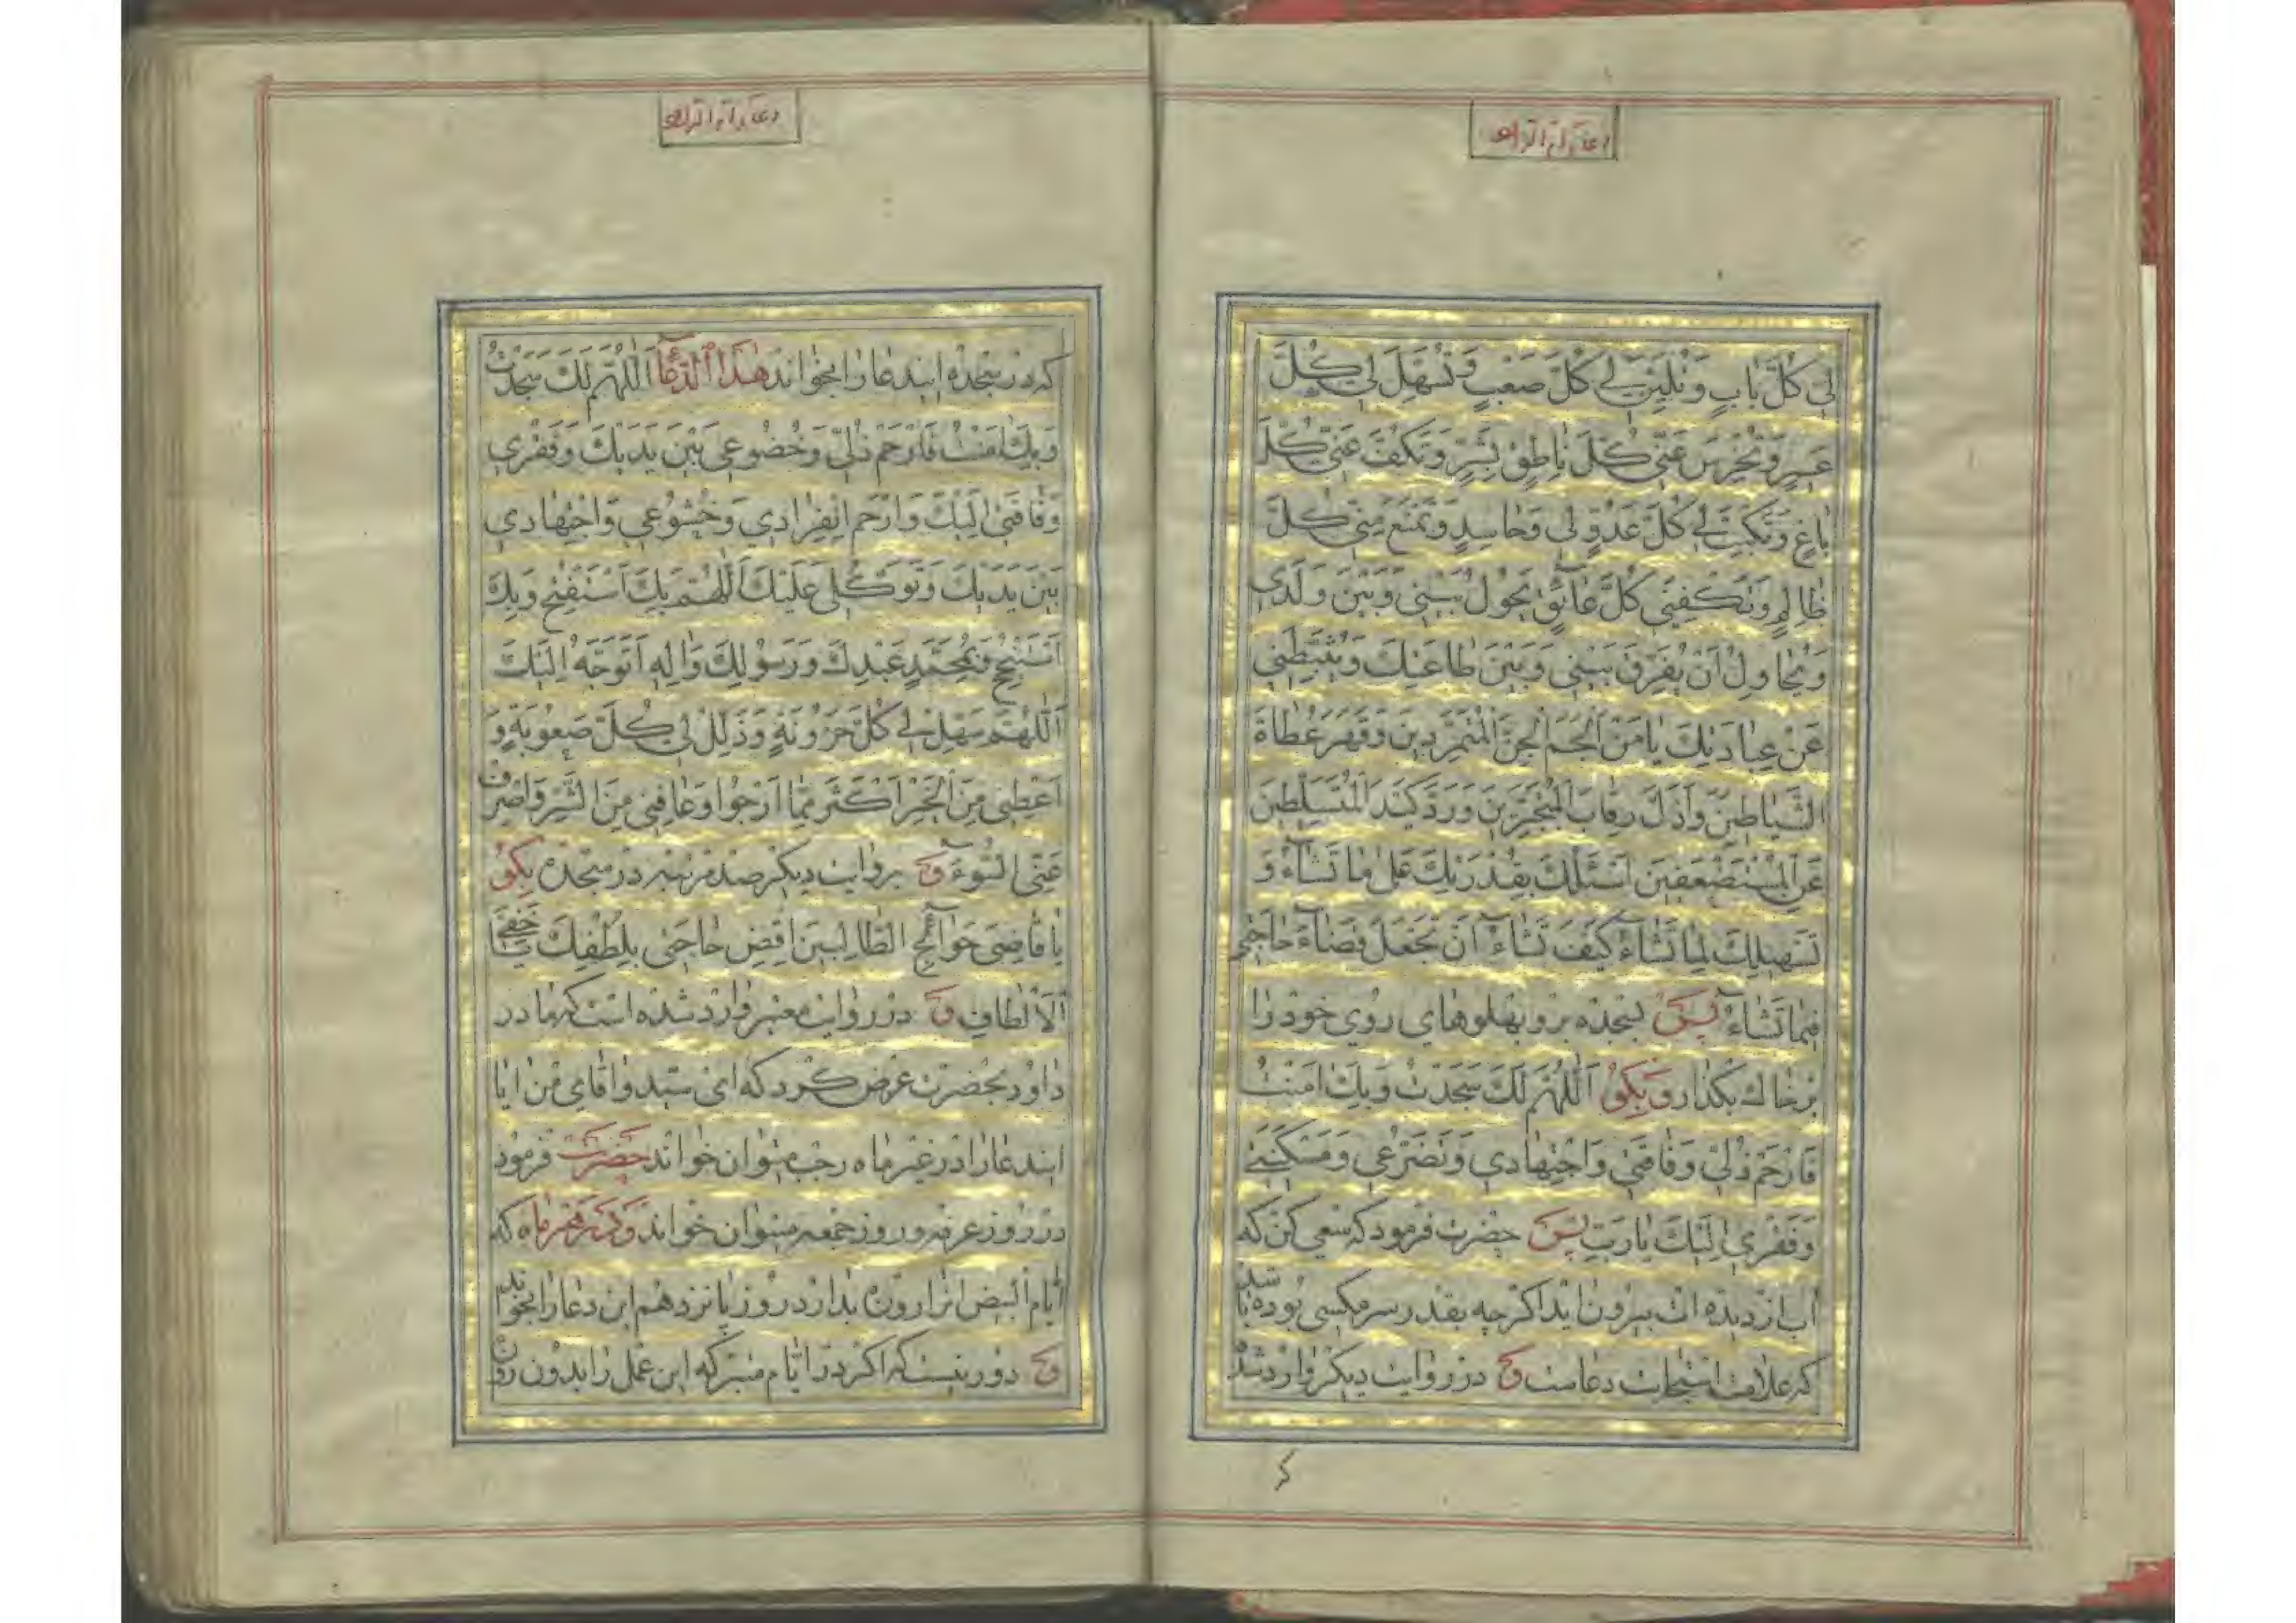 لى كُلَّ بابٍ وَتُلَيِّنَ لى كُلَّ صَعْبٍ وَتُسَهِّلَ لى كُلَّ
عَسيرٍ وَتُخْرِسَ عَنّى كُلَّ ناطِقٍ بِشَرٍّ وَتَكُفَّ عَنّى كُلَّ
باغٍ وَتَكْبِتَ لى كُلَّ عَدُوٍّ لى وَحاسِدٍ وَتَمْنَعَ مِنّى كُلَّ
ظالِمٍ وَتَكْفِيَنى كُلَّ عآئِقٍ يَحُولُ بَيْنى وَبَيْنَ وَلَدى
وَيُحاوِلُ اَنْ يُفَرِّقَ بَيْنى وَبَيْنَ طاعَتِكَ وَيُثَبِّطَنى
عَنْ عِبادَتِكَ يا مَنْ اَلْجَمَ الْجِنَّ الْمُتَمَرِّدينَ وَقَهَرَ عُتاةَ
الشَّياطينِ وَاَذَلَّ رِقابَ الْمُتَجَبِّرينَ وَرَدَّ كَيْدَ الْمُتَسَلِّطينَ
عَنِ الْمُسْتَضْعَفينَ اَسْئَلُكَ بِقُدْرَتِكَ عَلى ما تَشآءُ وَ
تَسْهيلِكَ لِما تَشآءُ كَيْفَ تَشآءُ اَنْ تَجْعَلَ قَضآءَ حاجَتى
فيما تَشآءُ پس بسجده برو و پهلوهاى روى خود را
بر خاك بگذار و بگو اَللّهُمَّ لَكَ سَجَدْتُ وَبِكَ امَنْتُ
فَارْحَمْ ذُلّى وَفاقَتى وَاجْتِهادى وَتَضَرُّعى وَمَسْكَنَتى
وَفَقْرى اِلَيْكَ يا رَبِّ پس حضرت فرمود كه سعى كن كه
آب از ديده ات بيرون ايد اگر چه بقدر سر مگسى بوده باشد
كه علامت استجابت دعاست وح در روايت ديگر وارد شد
كه در سجده ايندعا را بخواند هذا الدعآء اَللّهُمَّ لَكَ سَجَدْتُ
وَبِكَ امَنْتُ فَارْحَمْ ذُلّى وَخُضُوعى بَيْنَ يَدَيْكَ وَفَقْرى
وَفاقَتى اِلَيْكَ وَارْحَمْ اِنْفِرادى وَخُشُوعى وَاجْتِهادى
بَيْنَ يَدَيْكَ وَتَوَكُّلى عَلَيْكَ اَللّهُمَّ بِكَ اَسْتَفْتِحُ وَبِكَ
اَسْتَنْجِحُ وَبِمُحَمَّدٍ عَبْدِكَ وَرَسُولِكَ وَالِهِ اَتَوَجَّهُ اِلَيْكَ
اَللّهُمَّ سَهِّلْ لى كُلَّ حَزُونَةٍ وَذَلِّلْ لى كُلَّ صَعُوبَةٍ وَ
اَعْطِنى مِنَ الْخَيْرِ اَكْثَرَ مِمّا اَرْجُوا وَعافِنى مِنَ الشَّرِّ وَاصْرِفْ
عَنِّى السُّوءَ وح بروايت ديگر صد مرتبه در سجده بگو
يا قاضِىَ حَوآئِجِ الطّالِبينَ اقْضِ حاجَتى بِلُطْفِكَ يا خَفِىَّ
الْاَلْطافِ وح در روايت معتبر وارد شده است كه مادر
داود بحضرت عرض كرد كه اى سيد و اقاى من ايا
ايندعا را در غير ماه رجب ميتوان خواند حضرت فرمود
در روز عرفه و روز جمعه ميتوان خواند و در هر ماه كه
ايام البيض انرا روزه بدارد در روز پانزدهم اين دعا را بخواند
وح دور نيست كه اگر در ايام متبركه اين عمل را بدون روز